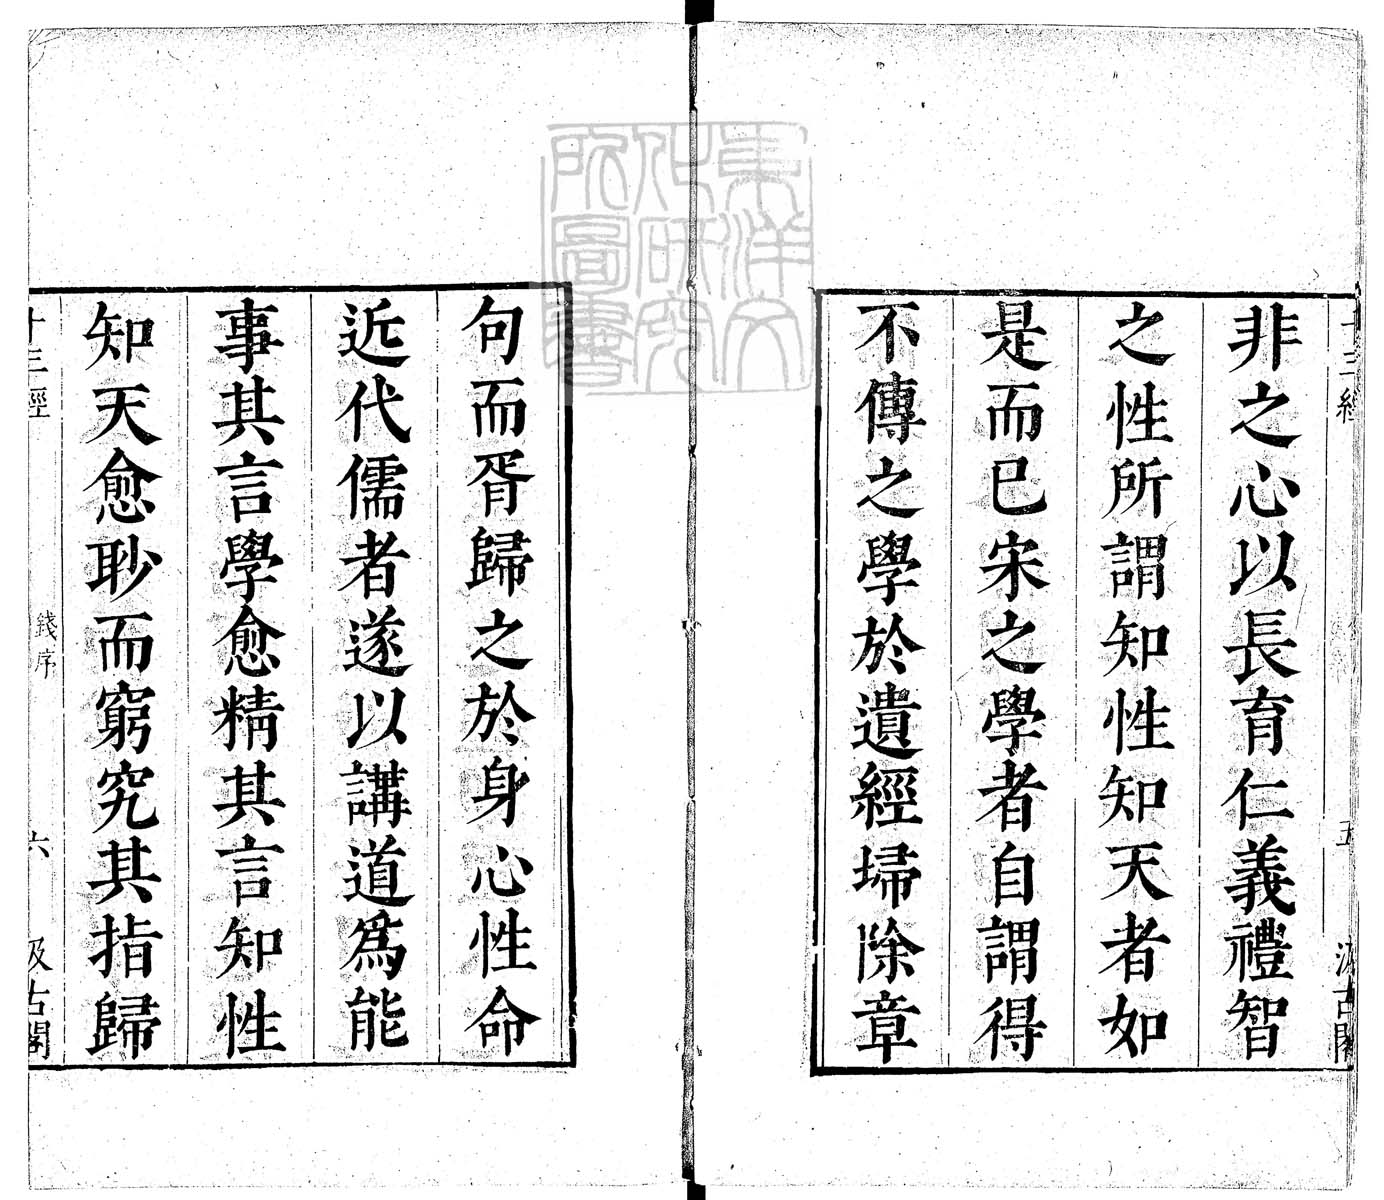 十三經
五
汲古閣
非之心以長育仁義禮智
之性所謂知性知天者如
是而已宋之學者自謂得
不傳之學於遺經埽除章
句而胥歸之於身心性命
近代儒者遂以講道爲能
事其言學愈精其言知性
知天愈眇而窮究其指歸
十三經
錢序
六
汲古閣
東洋文
化研究
所圖書